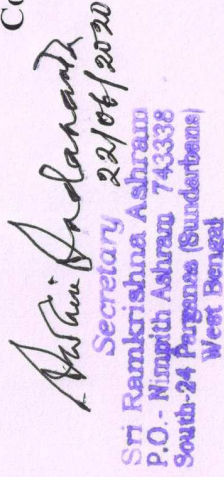 Co
22/06/2020
Secretary
Sri Ramkrishna Ashram
P.O.- Nimpith Ashram 743338
South-24 Parganas (Sundarbans)
West Bengal